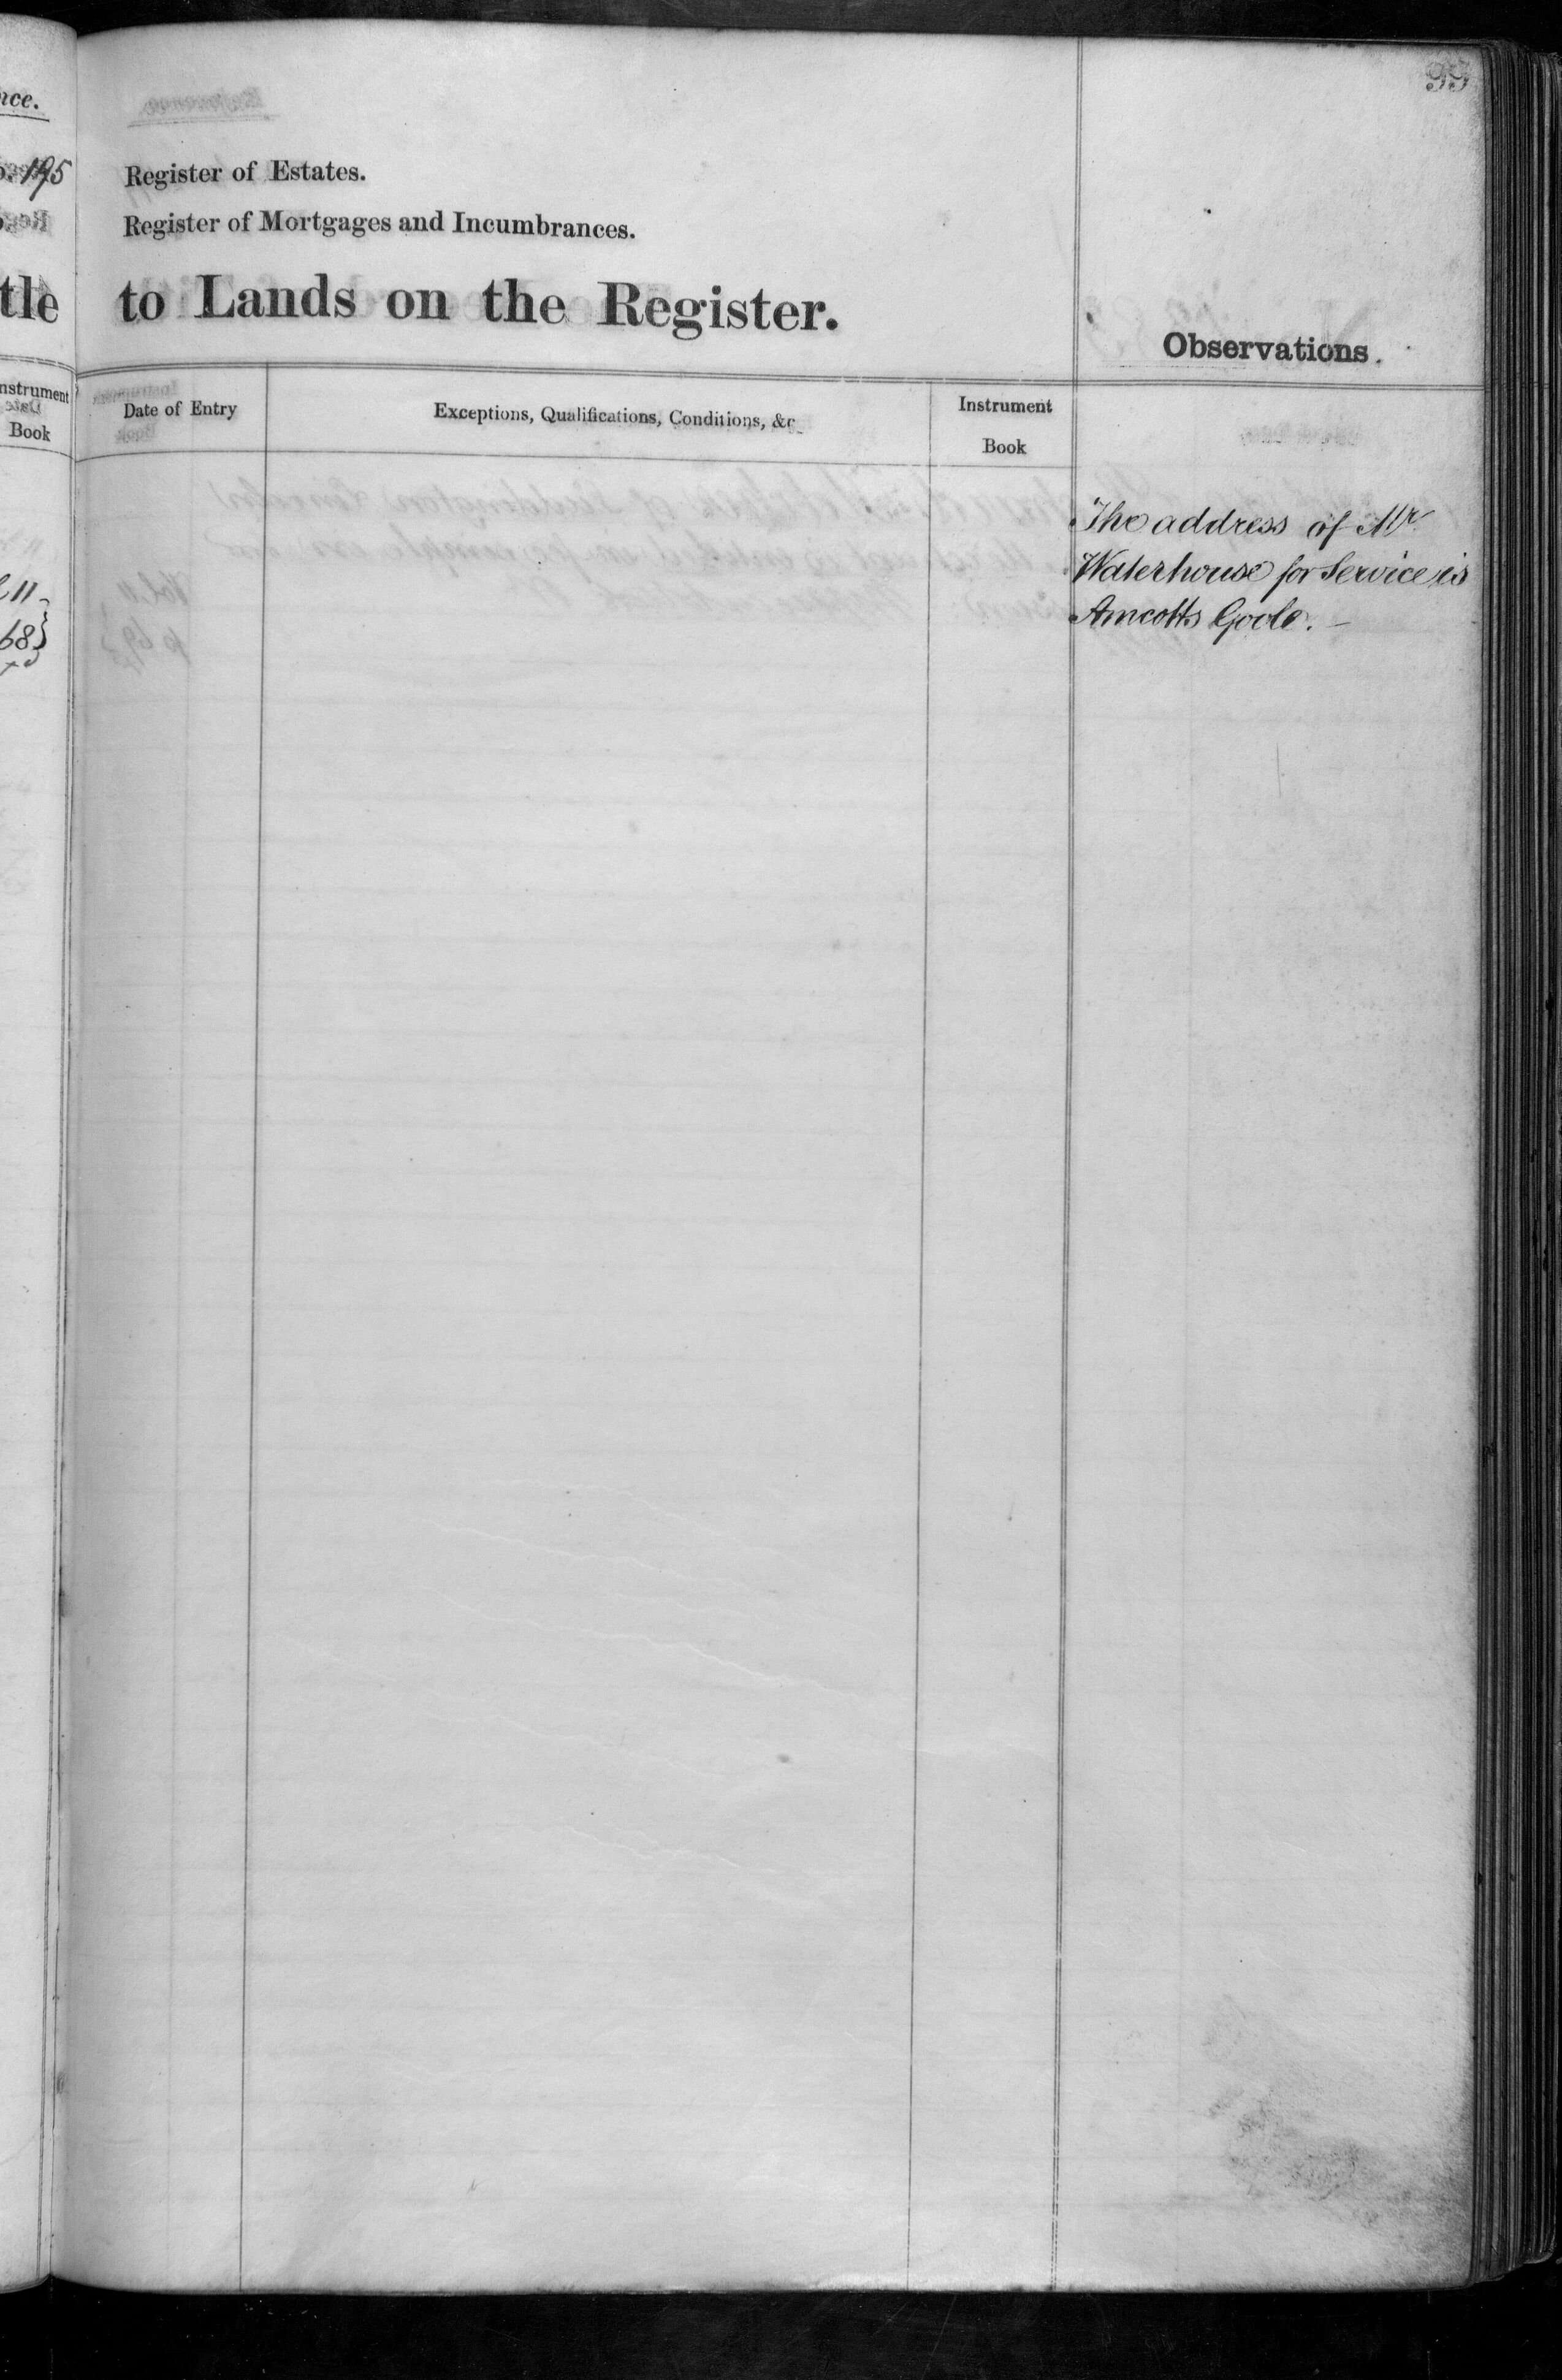 nce.
195
tle
Instrument
Book
11
68}
99
Register of Estates.
Register of Mortgages and Incumbrances.
to Lands on the Register.
Observations.
Date of Entry
Exceptions, Qualifications, Conditions, &c
Instrument
Book
The address of Mr
Waterhouse for Service is
Amcotts Goole. –